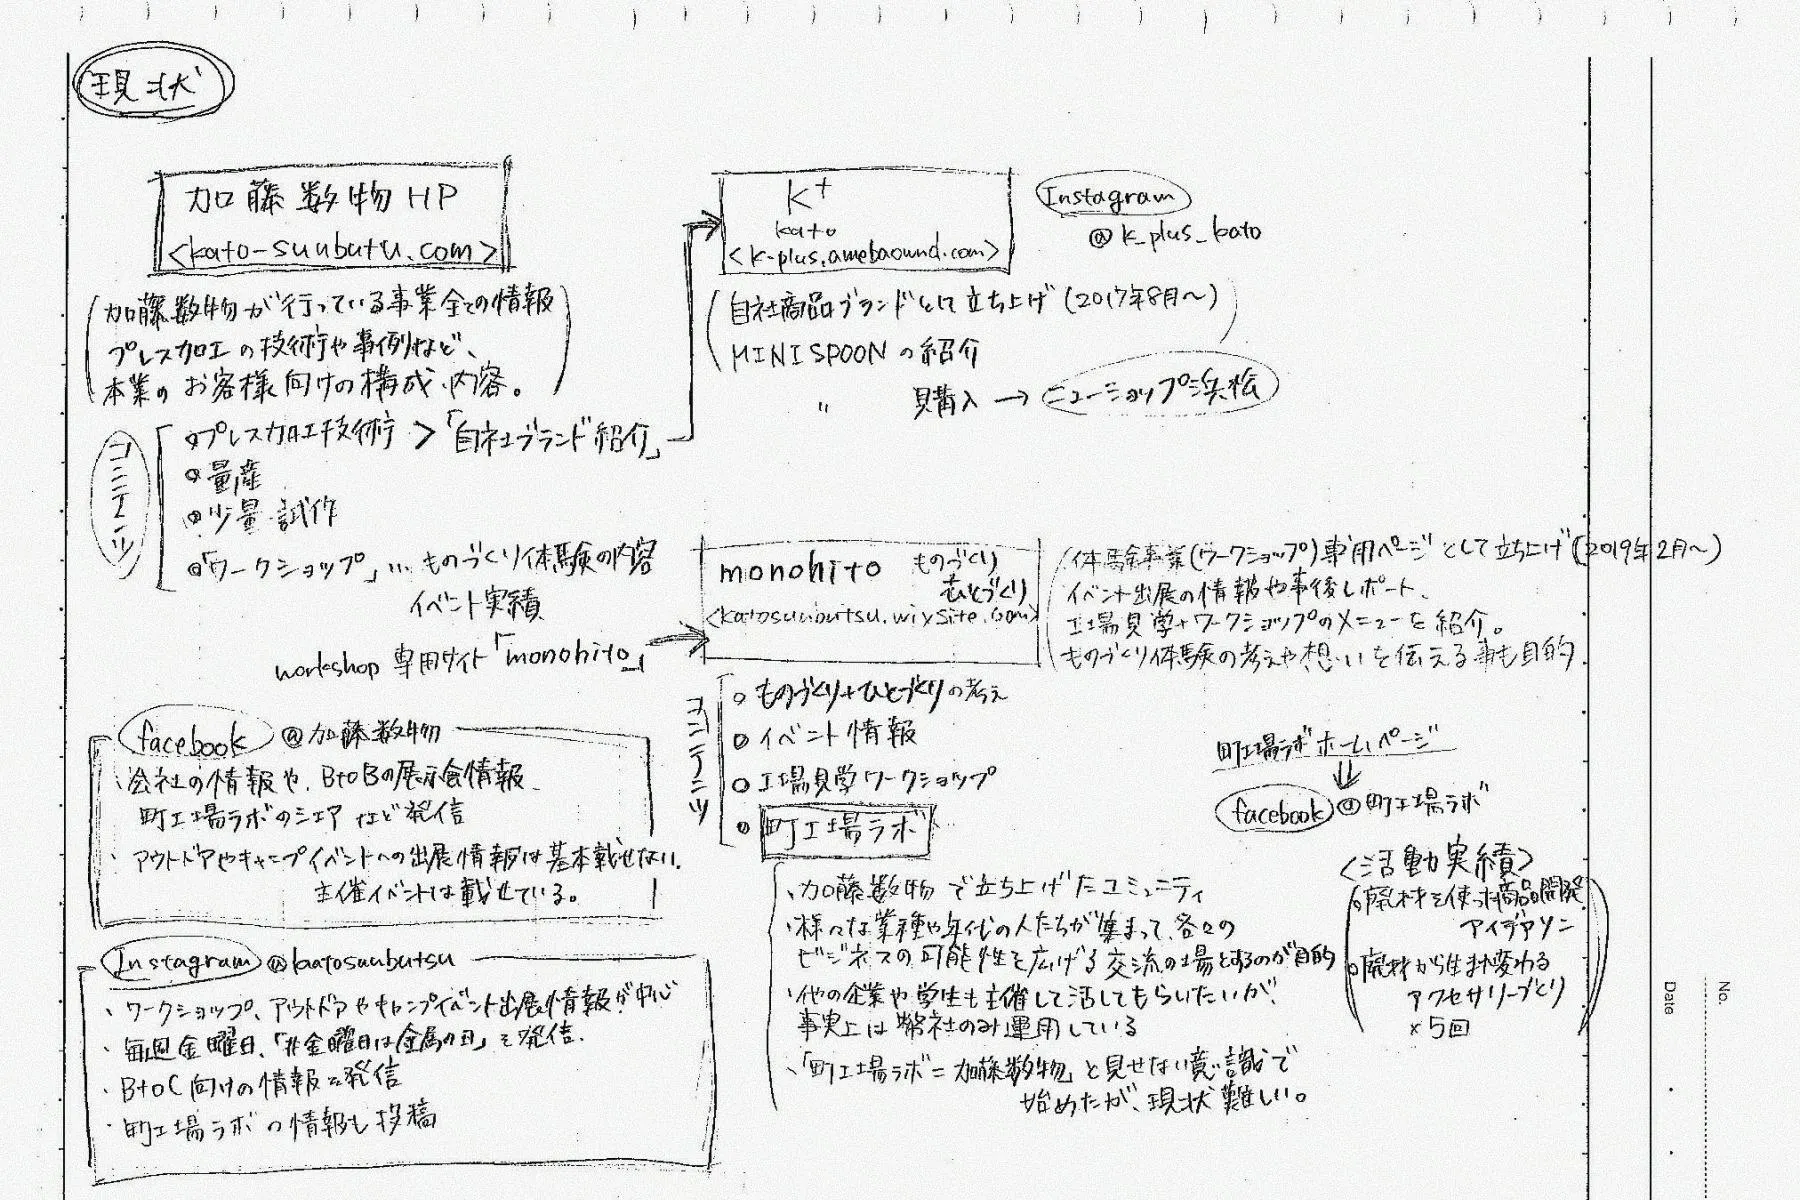 現状
加藤数物HP
<kato-suubutu.com>
(加藤数物が行っている事業全ての情報
プレス加工の技術や事例など、
本業のお客様向けの構成、内容。)
コンテンツ
○プレス加工技術 > 「自社ブランド紹介」
○量産
○少量・試作
○「ワークショップ」… ものづくり体験の内容
イベント実績
workshop 専用サイト「monohito」
K+
kato
<k-plus.amebaownd.com>
Instagram
@k_plus_kato
(自社商品ブランドとして立ち上げ(2017年8月〜)
MINI SPOONの紹介)
〃 購入 → ニューショップ浜松
monohito ものづくり
ひとづくり
<katosuubutsu.wixsite.com>
(体験事業(ワークショップ)専用ページとして立ち上げ(2019年2月〜)
イベント出展の情報や事後レポート、
工場見学+ワークショップのメニューを紹介。
ものづくり体験の考えや想いを伝える事も目的
コンテンツ
○ものづくり+ひとづくりの考え
○イベント情報
○工場見学ワークショップ
○町工場ラボ
facebook @加藤数物
・会社の情報や、BtoBの展示会情報、
町工場ラボのシェアなど発信
・アウトドアやキャンプイベントへの出展情報は基本載せない。
主催イベントは載せている。
Instagram @katosuubutsu
・ワークショップ、アウトドアやキャンプイベント出展情報が中心
・毎週金曜日、「#金曜日は金属の日」を発信。
・BtoC向けの情報を発信
・町工場ラボの情報も投稿
・加藤数物で立ち上げたコミュニティ
・様々な業種や年代の人たちが集まって、各々の
ビジネスの可能性を広げる交流の場とするのが目的
・他の企業や学生も主催して活してもらいたいが、
事実上は弊社のみ運用している
・「町工場ラボ=加藤数物」と見せない意識で
始めたが、現状難しい。
町工場ラボホームページ
⇓
facebook @町工場ラボ
<活動実績>
(○廃材を使った商品開発
アイデアソン
○廃材から生まれ変わる
アクセサリーづくり
×5回)
No.
Date